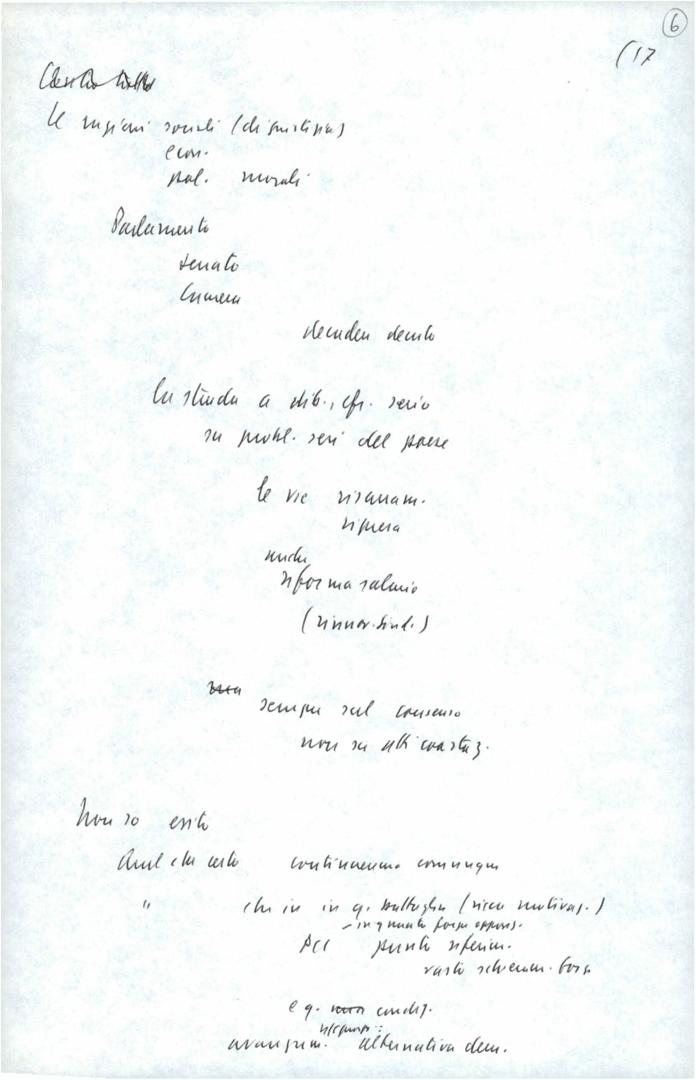 6
(17
le ragioni sociali (di giustizia)
econ.
pol. morali
Parlamento
senato
Camera
decidere decreto
la strada a dib., cfr. serio
su probl. seri del paese
le vie risanam.
ripresa
anche
riforma salario
(rinnov. sind.)
sempre sul consenso
non su atti coattiz.
Non so esito
Quel che certo continueremo comunque
" che in in q. battaglia (ricca motivaz.)
- in quanto forza oppos.
PCI punto riferim.
vasto schieram. forze
e q. condiz.
avanzam. alternativa dem.